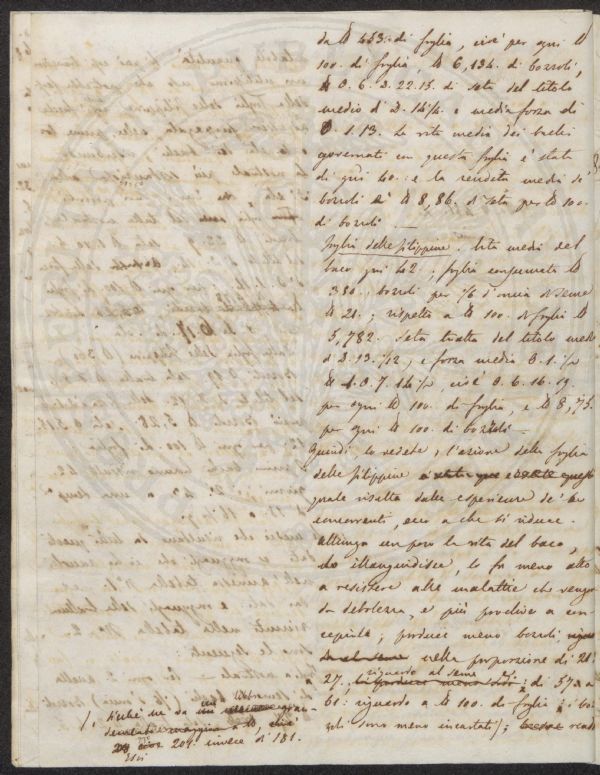 da ℔ 453. di foglia, cioè per ogni ℔
100. di foglia, ℔ 6,134. di bozzoli,
℔ 0. 6. 2. 22. 15. di seta del titolo
medio di D. 14¼. e media forza di
0. 1. 13. La vita media dei bachi
governati con questa foglia è stata
di gni 40. e la rendita media de'
bozzoli è ℔ 8,86. di seta per ℔ 100.
di bozzoli. —
foglia delle filippine. Vita media del
baco gni 42.; foglia consumata ℔
350.; bozzoli per ⅙ d'oncia di seme
℔ 21.; rispetto a ℔ 100. di foglia ℔
5,782. Seta tratta del titolo medio
di D. 13. 1/12, e forza media 0. 1. ½
℔ 1. 0. 7. 14 ½, cioè 0. 6. 16. 19.
per ogni ℔ 100. di foglia, e ℔ 8,75.
per ogni ℔ 100. di bozzoli —
Quindi, lo vedete, l'azione della foglia
delle filippine
quale risulta dalle esperienze de'
concorrenti, ecco a che si riduce.
allunga un poco la vita del baco,
lo illanguidisce, lo fa meno atto
a resistere alle malattie che vengono
da debolezza, e più proclive a con-
cepirle; produce meno bozzoli,
nella proporzione di 21 a
27, riguardo al seme; di 57 a
61: riguardo a ℔ 100. di foglia; i boz-
zoli sono meno incartati/; rende
/, Perchè ne va un
a ℔, cioè
204. invece di 181.